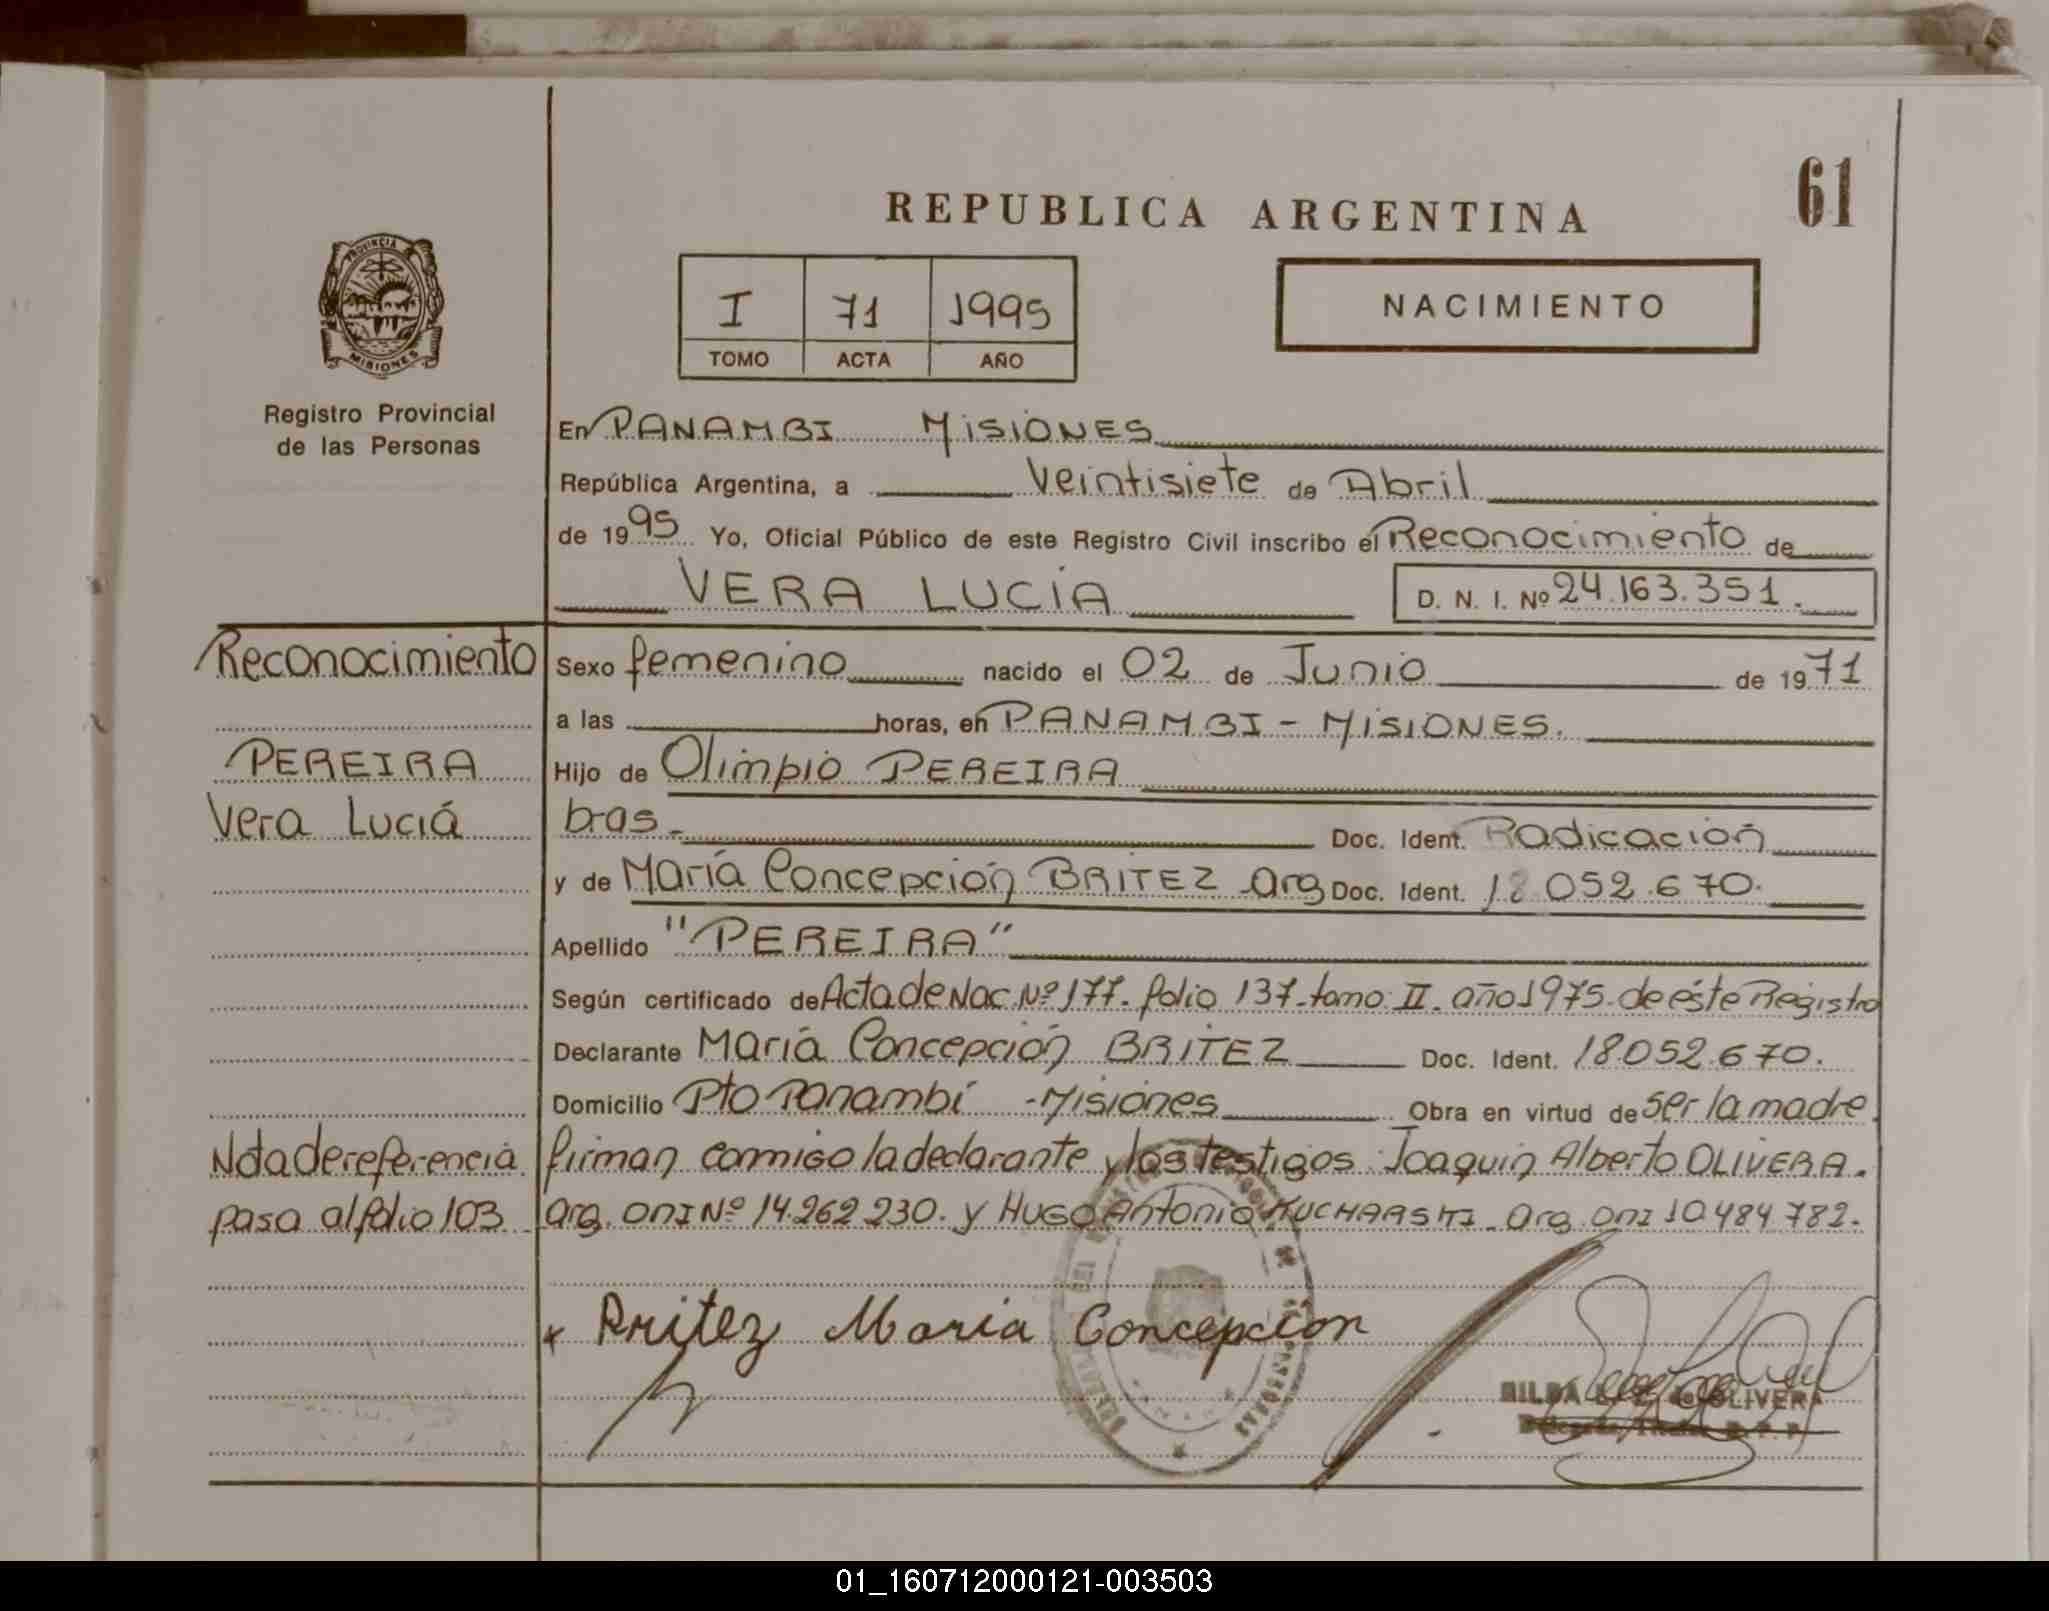 REPUBLICA ARGENTINA
61
I 71 1995
TOMO ACTA AÑO
NACIMIENTO
PROVINCIA
MISIONES
Registro Provincial
de las Personas
En PANAMBI MISIONES
República Argentina, a Veintisiete de Abril
de 1995 Yo, Oficial Público de este Registro Civil inscribo el Reconocimiento de
VERA LUCIA D. N. I. Nº 24.163.351.
Reconocimiento
PEREIRA
Vera Luciá
Nota de referencia
pasa al folio 103
Sexo femenino nacido el 02 de Junio de 1971
a las horas, en PANAMBI - MISIONES.
Hijo de Olimpio PEREIRA
bras.- Doc. Ident. Radicación
y de María Concepción BRITEZ arg Doc. Ident. 18.052.670.
Apellido "PEREIRA"
Según certificado de Acta de Nac. Nº 177. folio 137. tomo II. año 1975. de éste Registro
Declarante María Concepción BRITEZ Doc. Ident. 18.052.670.
Domicilio Pto Panambí - Misiones Obra en virtud de ser la madre.
firman conmigo la declarante y los testigos Joaquin Alberto OLIVERA.
arg. DNI Nº 14.262.230. y HUGO Antonio KUCHARSKI. arg. DNI 10.484.782.
x Britez Maria Concepcion
OLIVERA
01_160712000121-003503